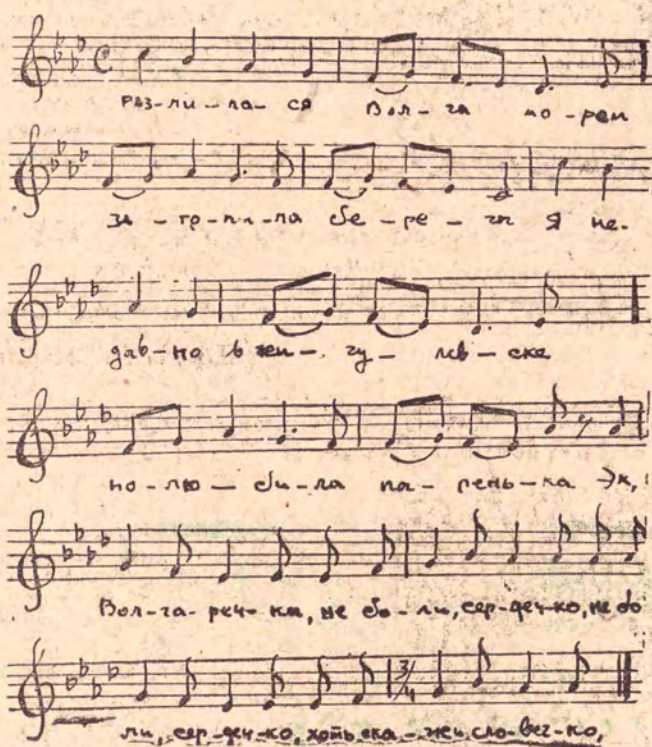 Раз-ли-ла-ся Вол-га мо-рем
за-то-пи-ла бе-ре-га Я не-
дав-но в Жи-гу-лев-ске
по-лю-би-ла па-рень-ка Эх,
Вол-га-реч-ка, не бо-ли, сер-деч-ко, не бо
ли, сер-деч-ко, хоть ска-жи сло-веч-ко,